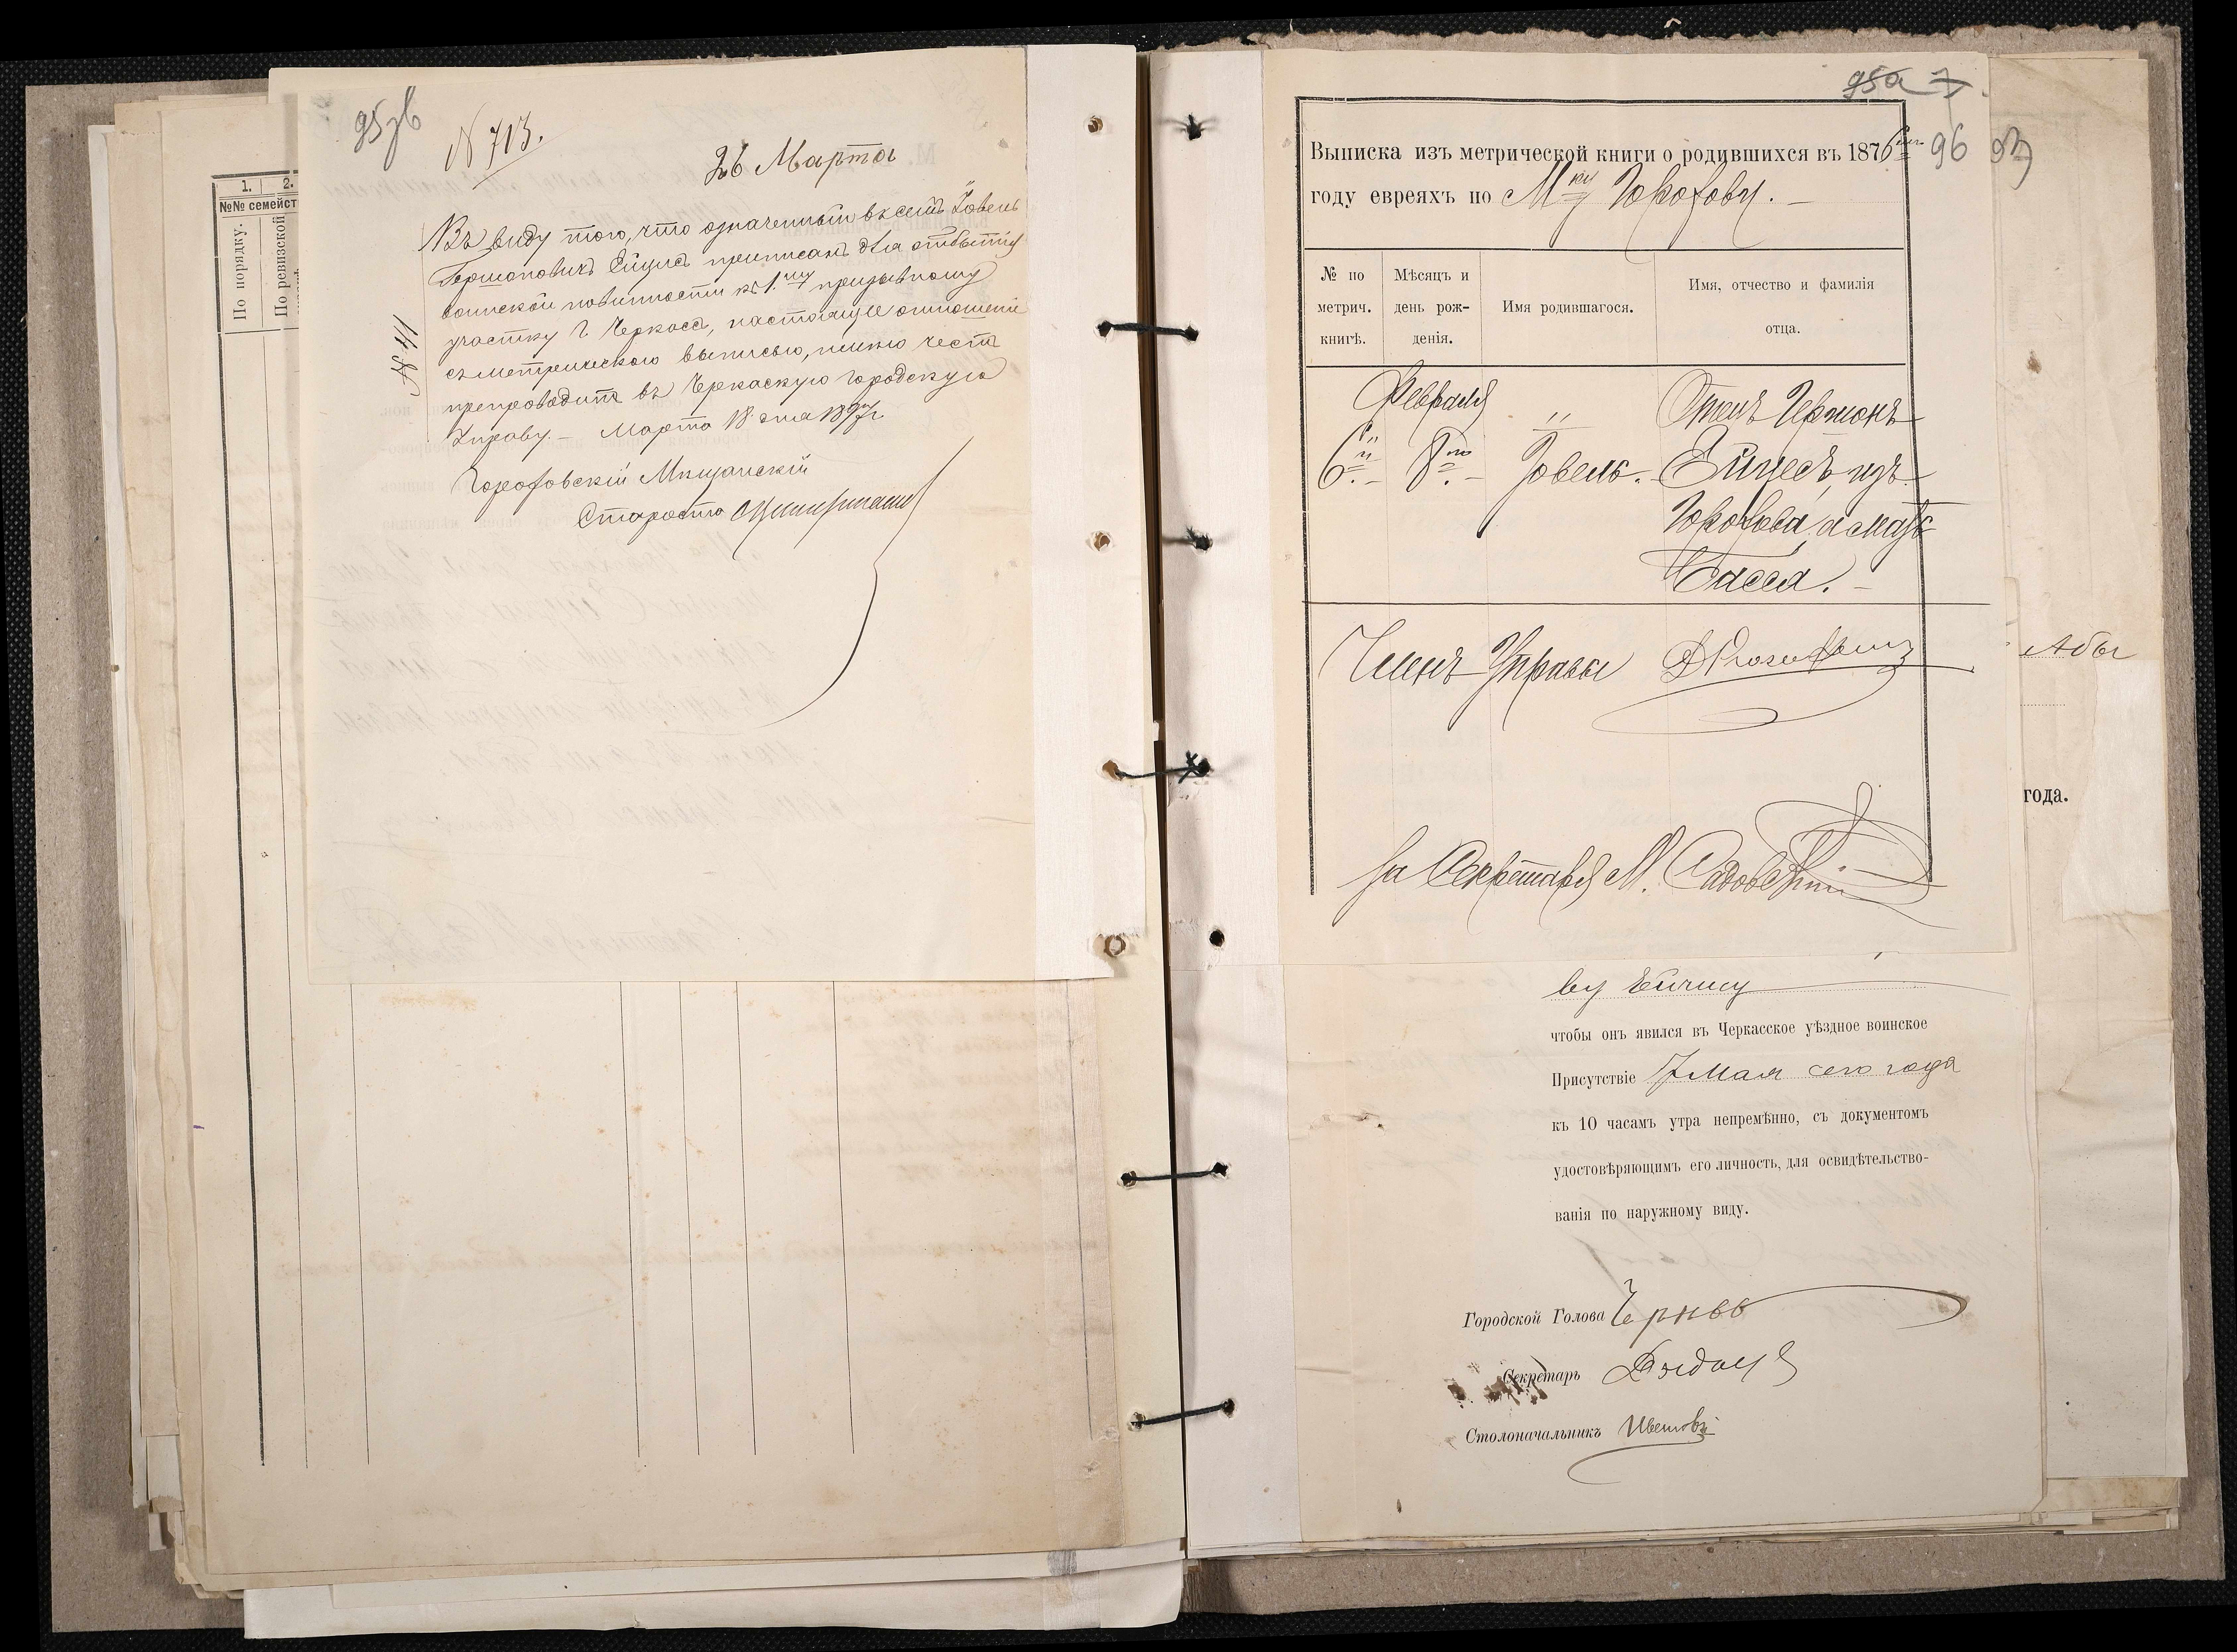 95зв
№ 713.
26 Марта
1.
2.
№№ семейст
По порядку.
По ревизской
№ 41
Въ виду того, что означенный въ семъ Іовель
Гершоновичъ Ейцисъ приписанъ для отбытія
воинской повинности къ 1.му призывному
участку г Черкассъ, настоящее отношеніе
съ метрическою выписью, имѣю честь
препроводить въ Черкаскую городскую
Управу. – Марта 18 дня 1897 г.
Городовскій Мѣщанскій
Староста
95а 7
96
Выписка изъ метрической книги о родившихся въ 1876
году евреяхъ по М-ку
№ по метрич. книгѣ.
Мѣсяцъ и день рожденія.
Имя родившагося.
Имя, отчество и фамилія отца.
Февраля
Отецъ Гершонъ
6. 8. Іовель. Ейцесъ изъ
а мать
Бася. –
Членъ Управы
За Секретаря М. Садовскій
Абы
года.
ву Ейцису
чтобы онъ явился въ Черкасское уѣздное воинское
Присутствіе 7 Мая сего года
къ 10 часамъ утра непремѣнно, съ документомъ
удостовѣряющимъ его личность, для освидѣтельство-
ванія по наружному виду.
Городской Голова
Секретарь
Столоначальникъ